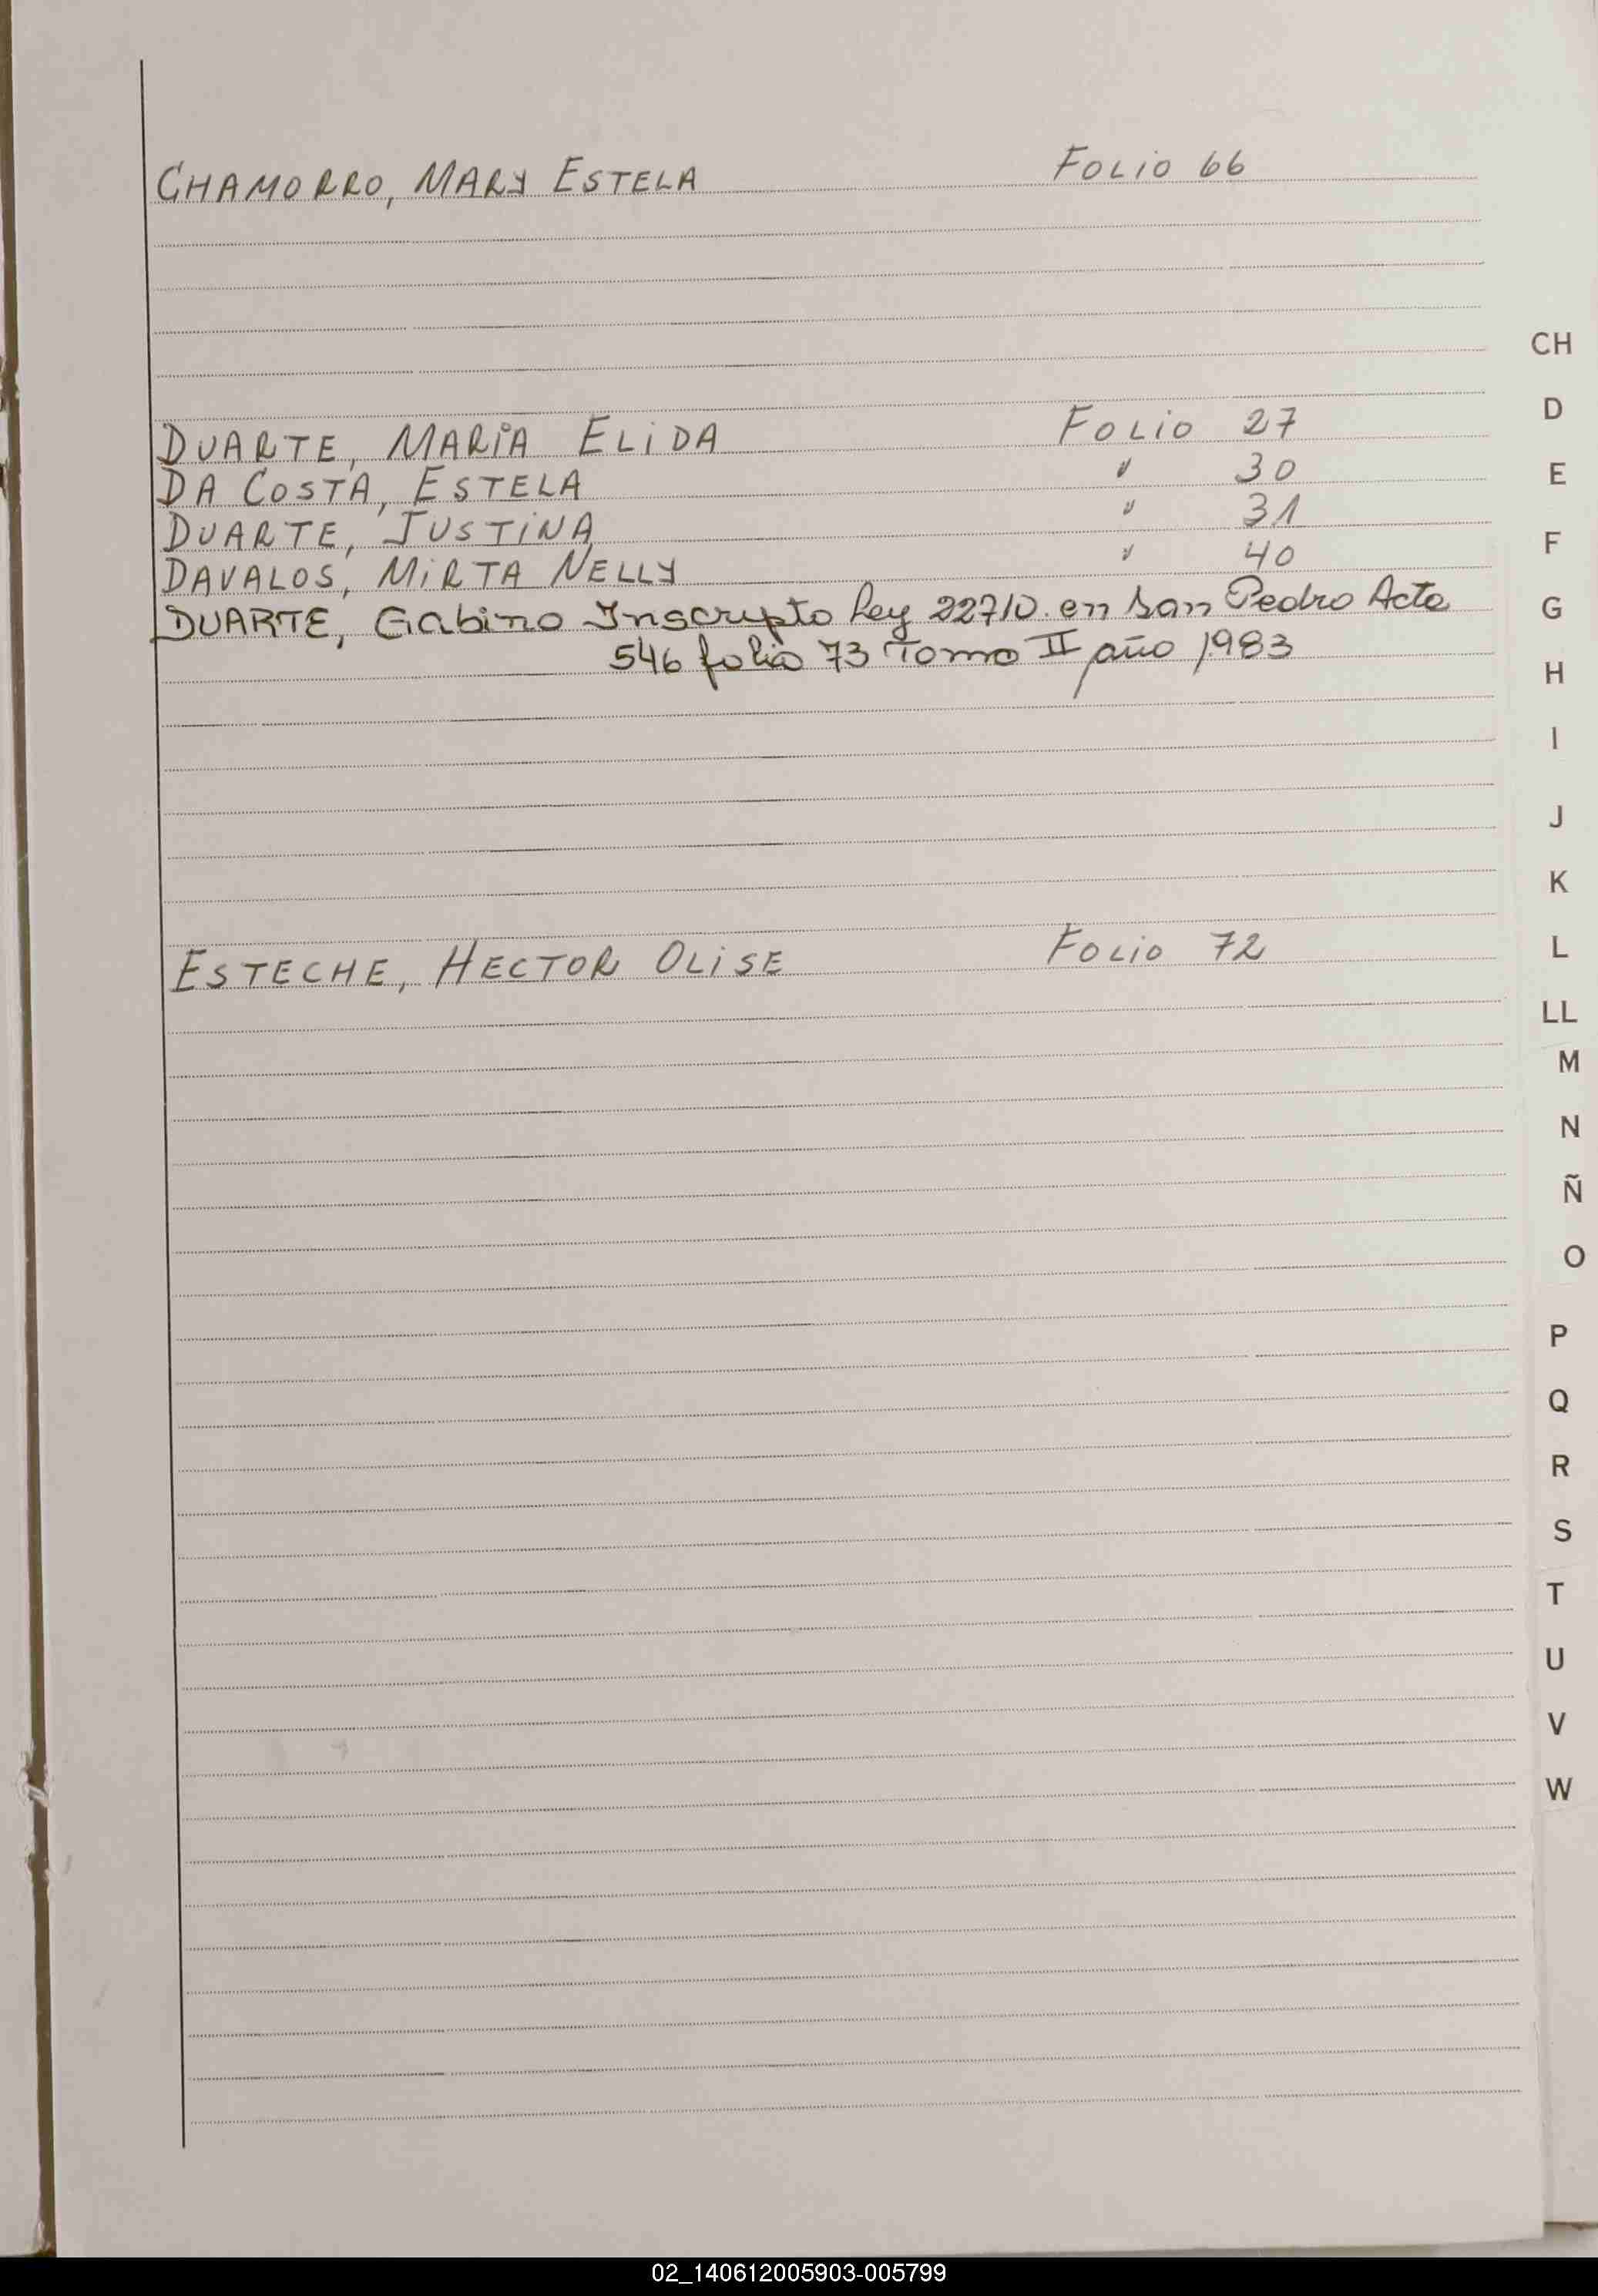 CHAMORRO, MARY ESTELA Folio 66
DUARTE, MARIA ELIDA Folio 27
DA COSTA, ESTELA " 30
DUARTE, JUSTINA " 31
DAVALOS, MIRTA NELLY " 40
DUARTE, Gabino Inscripto Ley 22710 en San Pedro Acta
546 folio 73 Tomo II año 1983
ESTECHE, HECTOR OLISE Folio 72
CH
D
E
F
G
H
I
J
K
L
LL
M
N
Ñ
O
P
Q
R
S
T
U
V
W
02_140612005903-005799